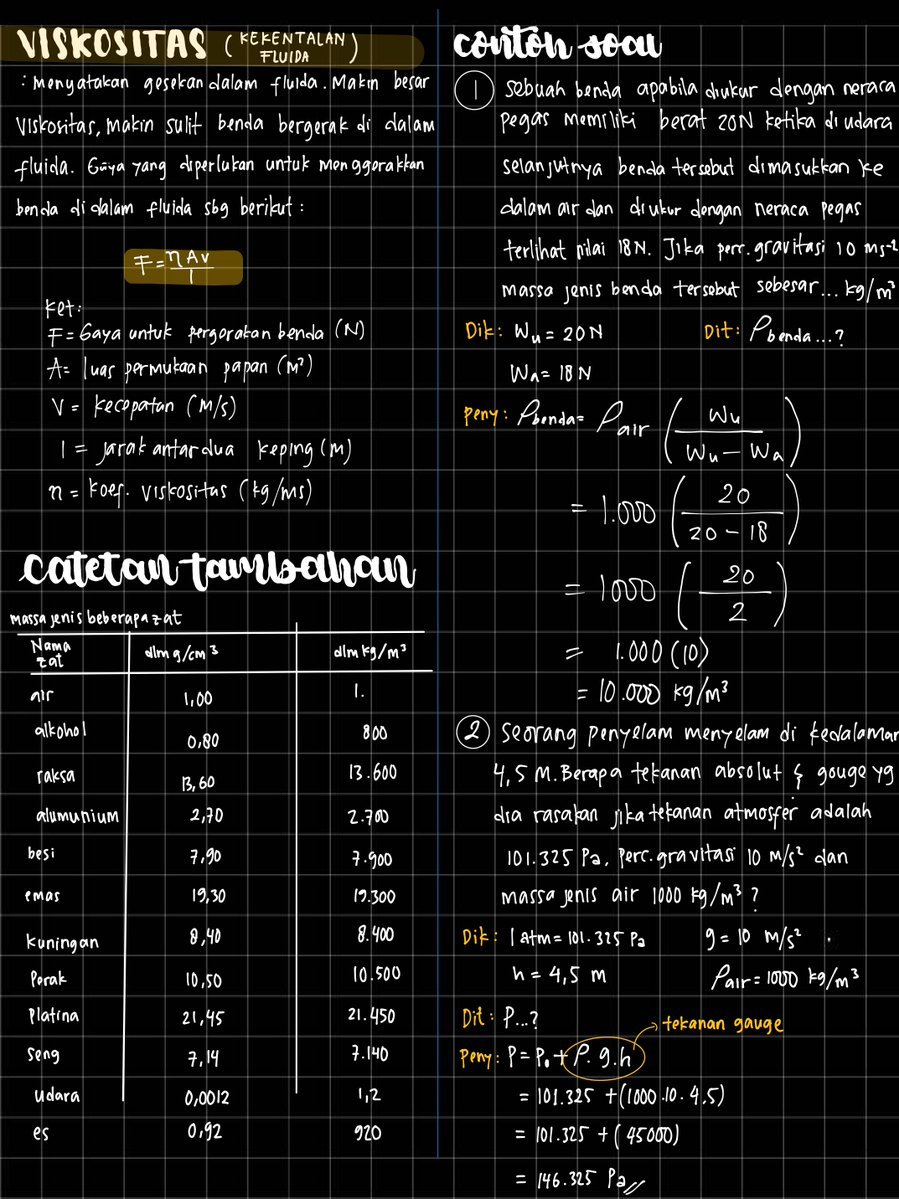 VISKOSITAS (KEKENTALAN FLUIDA)
: menyatakan gesekan dalam fluida. Makin besar
Viskositas, makin sulit benda bergerak di dalam
fluida. Gaya yang diperlukan untuk menggerakkan
benda didalam fluida sbg berikut :
F = ηAv/l
Ket:
F = Gaya untuk pergerakan benda (N)
A = luas permukaan papan (m²)
V = kecepatan (m/s)
l = jarak antar dua keping (m)
η = koef. viskositas (kg/ms)
catetan tambahan
massa jenis beberapa zat
Nama zat dlm g/cm³ dlm kg/m³
air 1,00 1.
alkohol 0,80 800
raksa 13,60 13.600
alumunium 2,70 2.700
besi 7,90 7.900
emas 19,30 19.300
kuningan 8,40 8.400
Perak 10,50 10.500
Platina 21,45 21.450
Seng 7,14 7.140
udara 0,0012 1,2
es 0,92 920
contoh soal
1 Sebuah benda apabila diukur dengan neraca
pegas memiliki berat 20N ketika di udara
selanjutnya benda tersebut dimasukkan ke
dalam air dan diukur dengan neraca pegas
terlihat nilai 18N. Jika perc. gravitasi 10 ms⁻²
massa jenis benda tersebut sebesar... kg/m³
Dik: Wu = 20N Dit: ρbenda...?
Wa = 18N
Peny: ρbenda = ρair (Wu / Wu - Wa)
= 1.000 (20 / 20 - 18)
= 1000 (20 / 2)
= 1.000 (10)
= 10.000 kg/m³
2 Seorang penyelam menyelam di kedalaman
4,5 M. Berapa tekanan absolut & gouge yg
dia rasakan jika tekanan atmosfer adalah
101.325 Pa, perc. gravitasi 10 m/s² dan
massa jenis air 1000 kg/m³ ?
Dik: 1 atm = 101.325 Pa g = 10 m/s²
h = 4,5 m ρair = 1000 kg/m³
Dit: P...?
→ tekanan gauge
Peny: P = P₀ + ρ. g.h
= 101.325 + (1000.10. 4.5)
= 101.325 + (45000)
= 146.325 Pa//